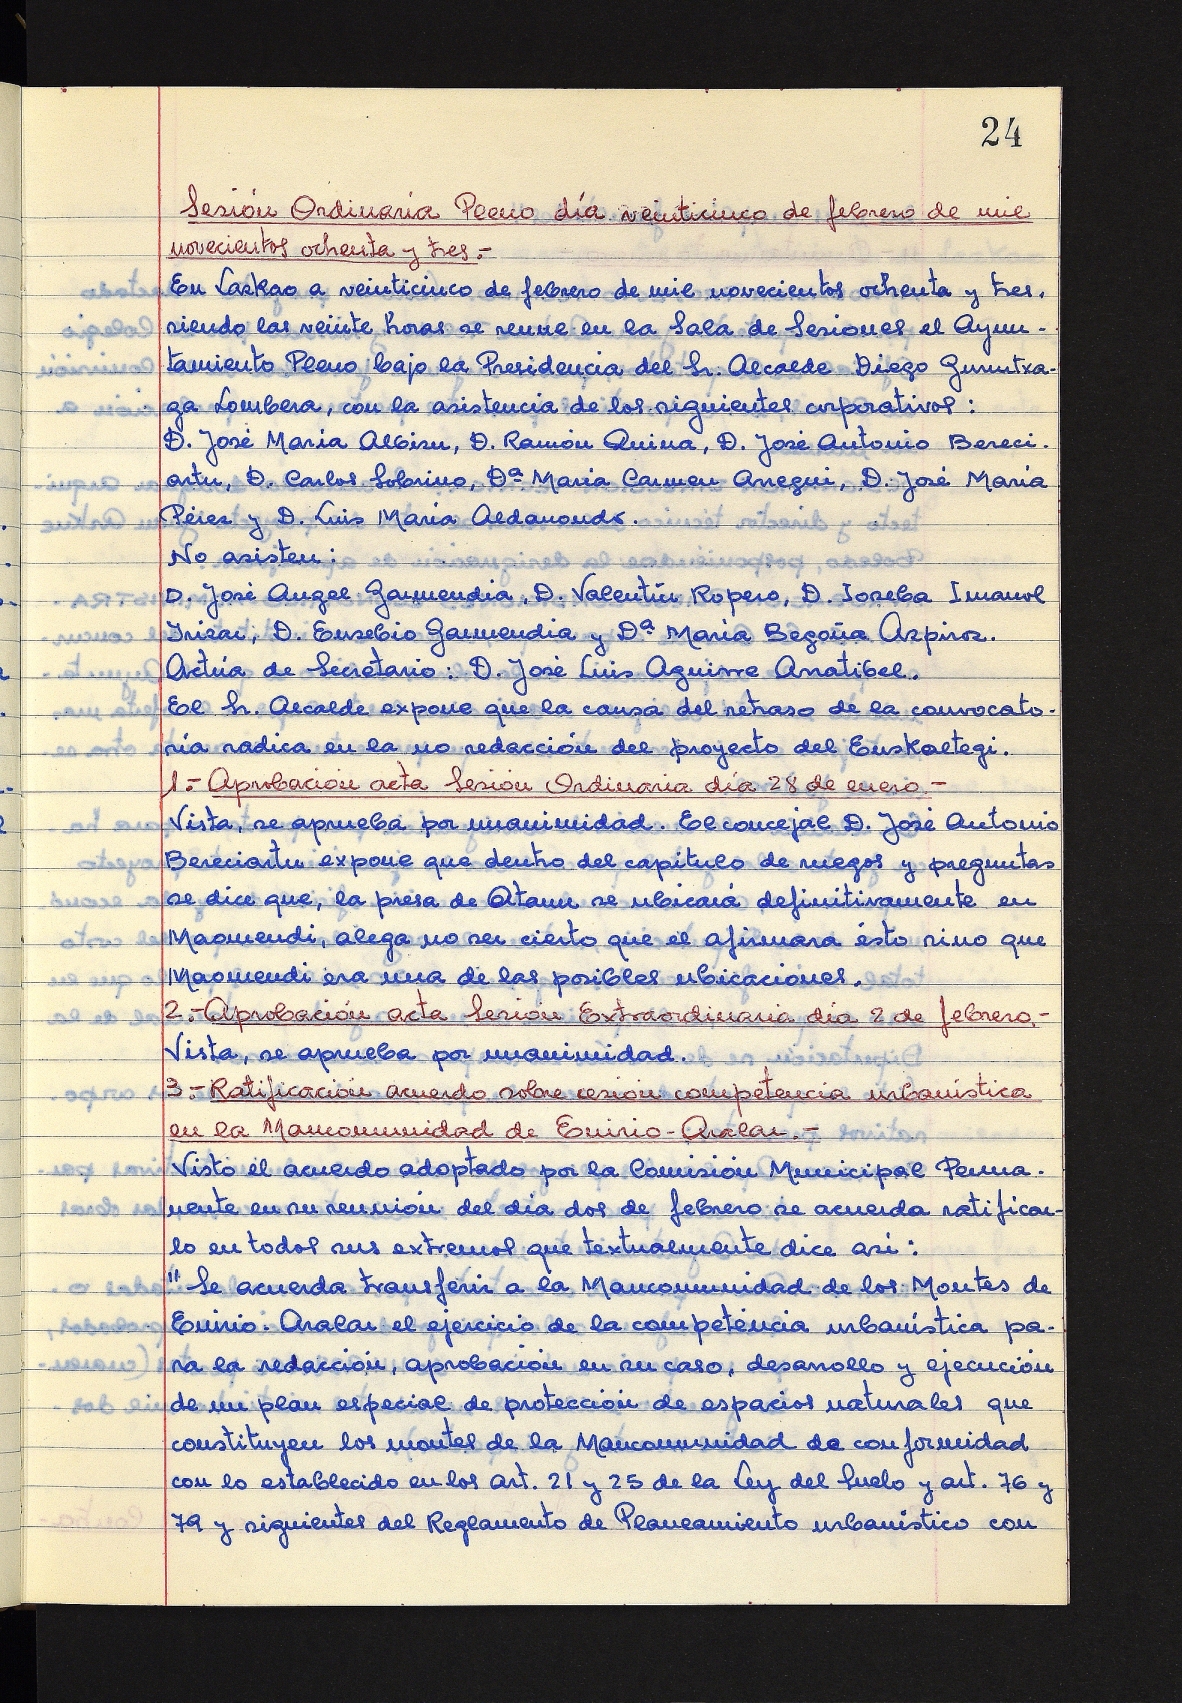 24
Sesión Ordinaria Pleno día veinticinco de febrero de mil
novecientos ochenta y tres.-
En Lazkao a veinticinco de febrero de mil novecientos ochenta y tres,
siendo las veinte horas se reune en la Sala de Sesiones el Ayun-
tamiento Pleno bajo la Presidencia del Sr. Alcalde Diego Gurrutxa-
ga Lombera, con la asistencia de los siguientes corporativos:
D. José Maria Albisu, D. Ramón Quina, D. José Antonio Bereci-
artu, D. Carlos Sobrino, Dª Maria Carmen Arregui, D. José María
Pérez y D. Luis Maria Aldanondo.
No asisten:
D. José Angel Garmendia, D. Valentín Ropero, D. Ioseba Imanol
Irizar, D. Eusebio Garmendia y Dª María Begoña Azpiroz.
Actúa de Secretario: D. José Luis Aguirre Arratibel.
El Sr. Alcalde expone que la causa del retraso de la convocato-
ria radica en la no redacción del proyecto del Euskaltegi.
1.- Aprobación acta Sesión Ordinaria día 28 de enero.-
Vista, se aprueba por unanimidad. El concejal D. José Antonio
Bereciartu expone que dentro del capítulo de ruegos y preguntas
se dice que, la presa de Ataun se ubicará definitivamente en
Maomendi, alega no ser cierto que el afirmara ésto sino que
Maomendi era una de las posibles ubicaciones.
2.- Aprobación acta Sesión Extraordinaria día 2 de febrero.-
Vista, se aprueba por unanimidad.
3.- Ratificación acuerdo sobre cesión competencia urbanística
en la Mancomunidad de Enirio-Aralar.-
Visto el acuerdo adoptado por la Comisión Municipal Perma-
nente en su reunión del día dos de febrero se acuerda ratificar-
lo en todos sus extremos que textualmente dice asi:
" Se acuerda transferir a la Mancomunidad de los Montes de
Enirio-Aralar el ejercicio de la competencia urbanística pa-
ra la redacción, aprobación en su caso, desarrollo y ejecución
de un plan especial de protección de espacios naturales que
constituyen los montes de la Mancomunidad de conformidad
con lo establecido en los art. 21 y 25 de la Ley del Suelo y art. 76 y
79 y siguientes del Reglamento de Planeamiento urbanístico con